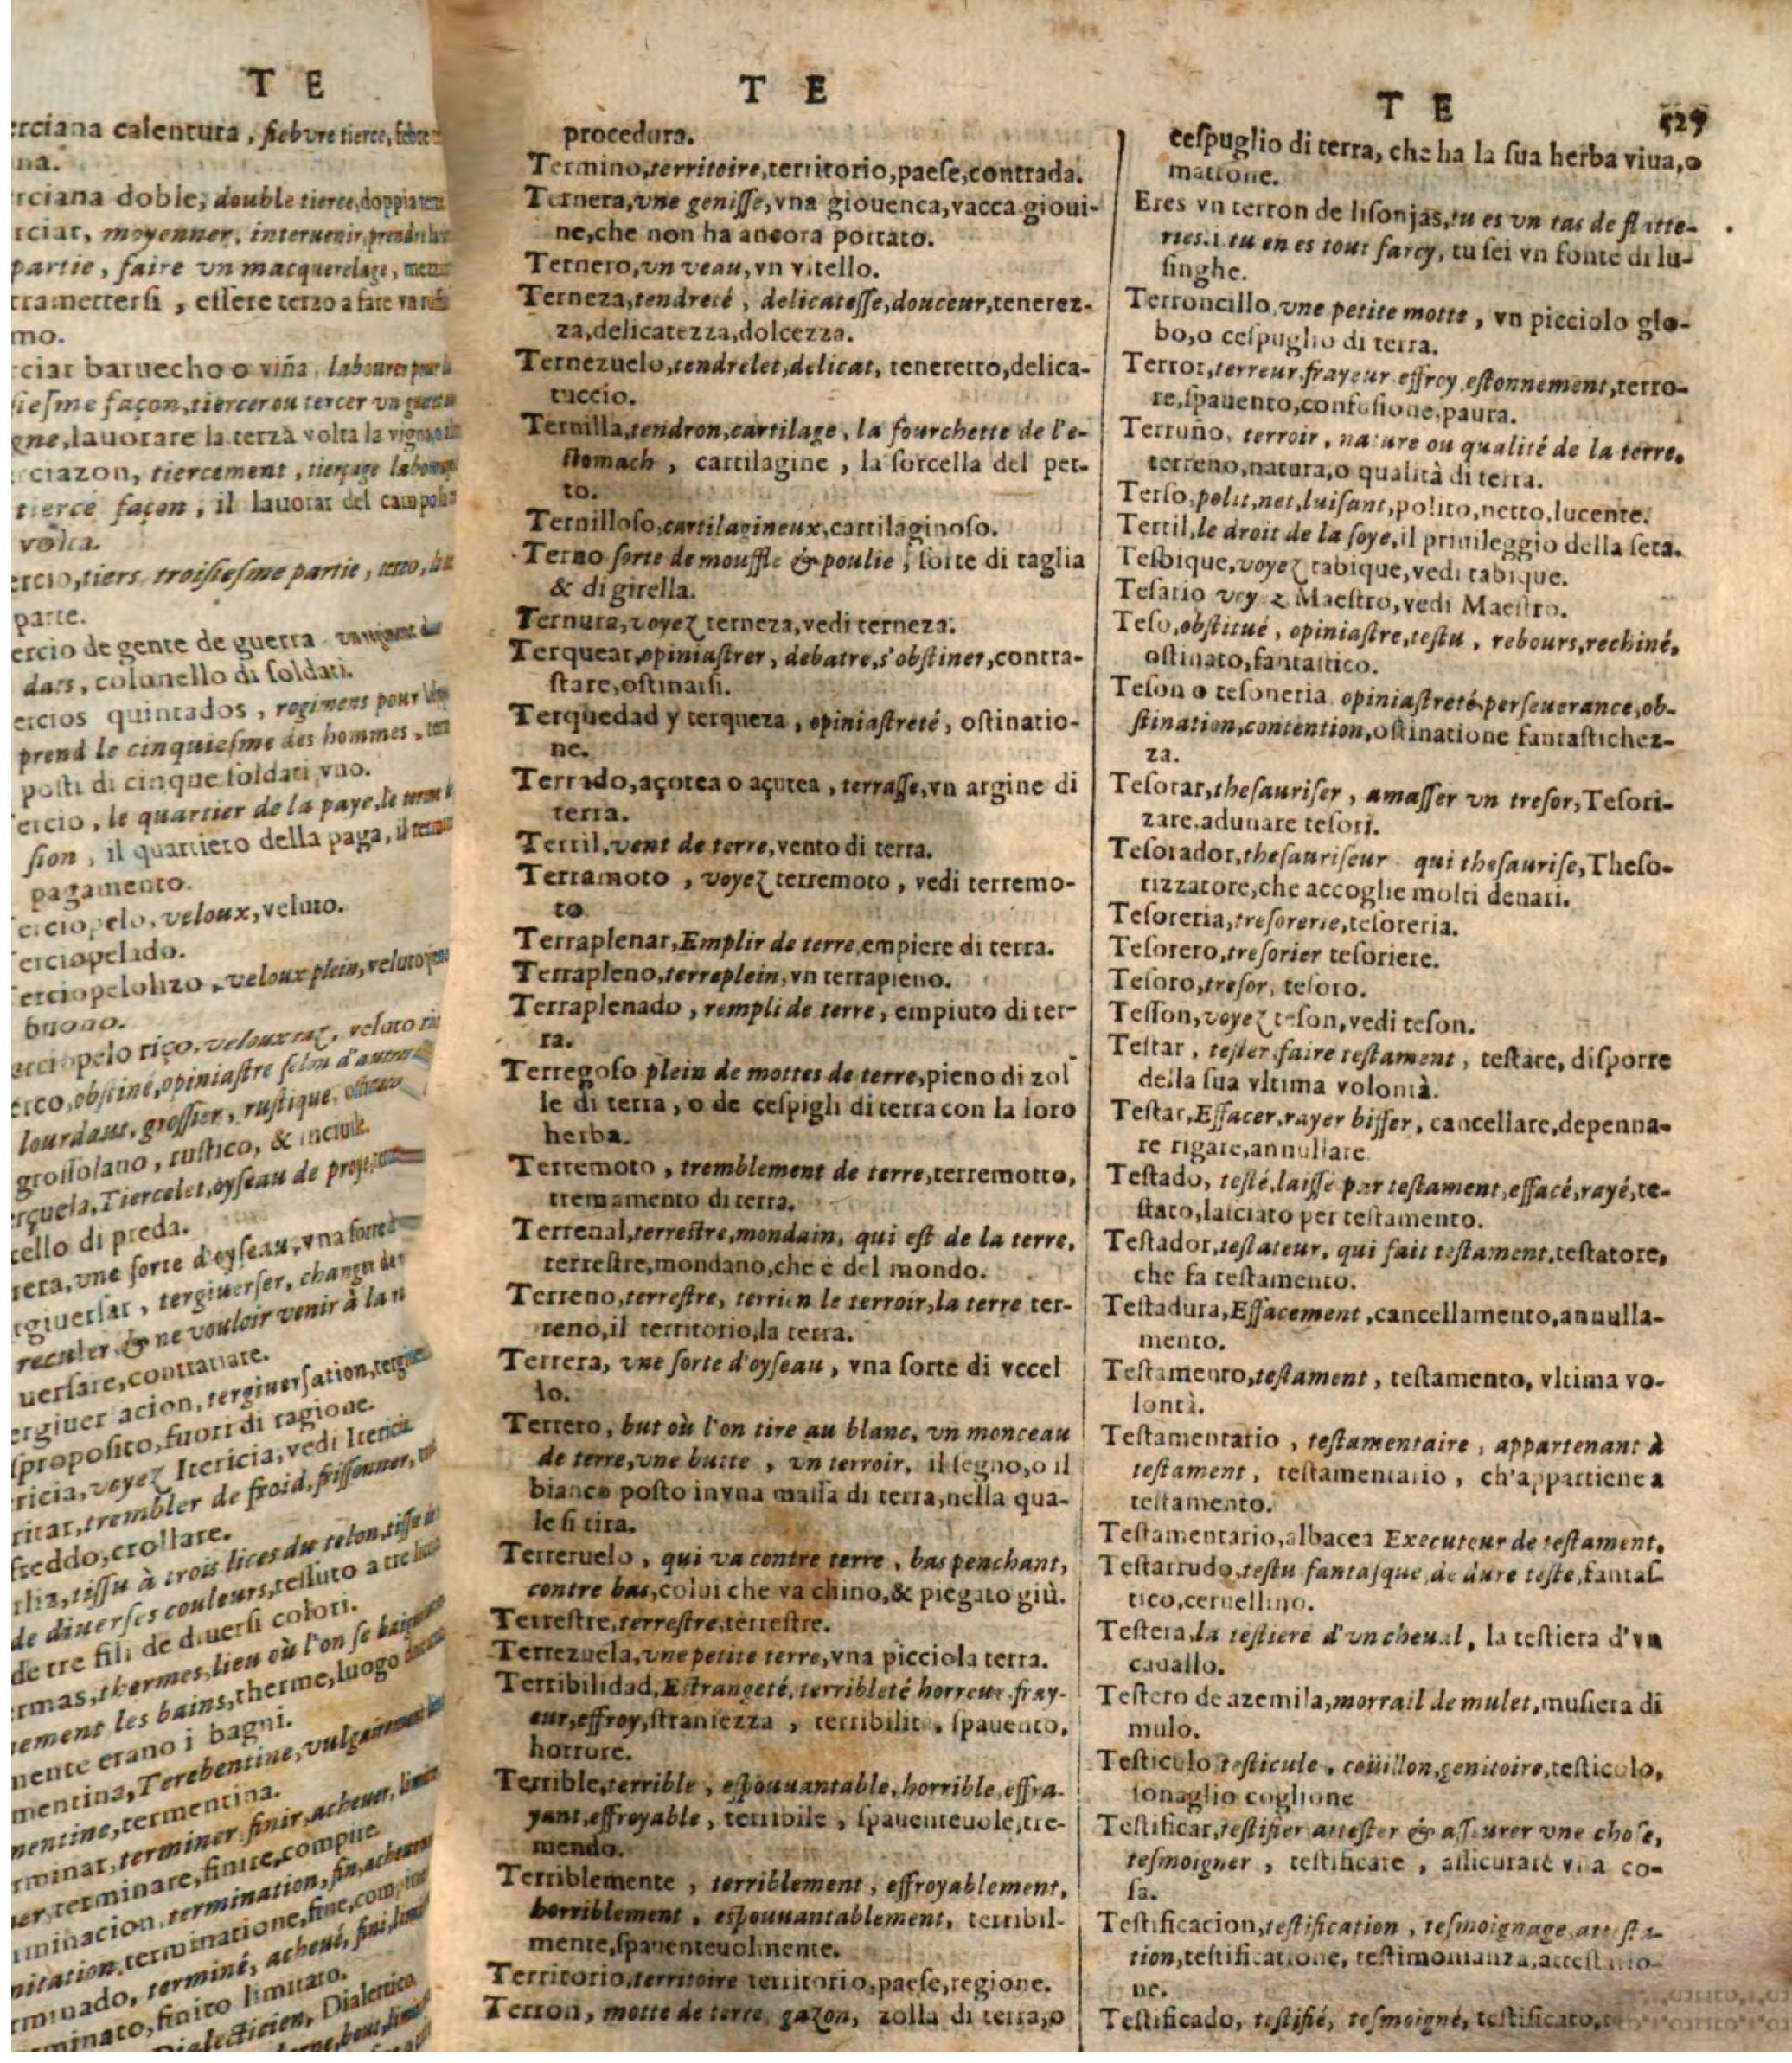 T E
erciana calentura, fiebvre tierce, febre
na.
rciana doble, double tierce, doppia terz
rciar, moyenner, interuenir, prendre la
partie, faire vn macquerelage,
tramettersi, essere terzo a fare
mo.
ciar baruecho o viña, labourer pour la
siesme façon, tiercer ou tercer vn
gne, lauorare la terza volta la vigna
ciazon, tiercement, tierçage
tierce façon, il lauorar del campo
volta.
ercio, tiers troisiesme partie, terzo,
parte.
ercio de gente de guerra
dars, colonello di soldati.
ercios quintados, regimens pour
prend le cinquiesme des hommes,
posti di cinque soldati vno.
ercio, le quartier de la paye, le
sion, il quartiero della paga, il
pagamento.
erciopelo, veloux, veluto.
erciopelado.
erciopelo lizo, veloux plein, veluto
buono.
erciopelo riço, veloux raz, veluto
erco, obstiné, opiniastre selon d'autres
lourdaut, grossier, rustique,
grossolano, rustico, & inciuile.
rçuela, Tiercelet, oyseau de proye,
cello di preda.
rera, vne sorte d'oyseau, vna sorte
rgiuersar, tergiuerser, changer
reculer & ne vouloir venir à la
uersare, contrariare.
ergiuer acion, tergiuersation,
sproposito, fuori di ragione.
ricia, voyez Itericia, vedi Itericia
ritar, trembler de froid, frissonner,
freddo, crollare.
rliz, tissu à trois lices du telon, tissu
de diuerses couleurs, telluto a tre
de tre fili de diuersi colori.
rmas, thermes, lieu où l'on se
nement les bains, therme, luogo
nente erano i bagni.
mentina, Terebentine,
mentine, termentina.
rminar, terminer finir, acheuer,
er, terminare, finire, compire
rminacion, termination, fin,
mitation, terminatione, fine,
rminado, terminé, acheué, fini,
rminato, finito limitato.
Dialecticien, Dialetico
T E
procedura.
Termino, territoire, territorio, paese, contrada.
Ternera, vne genisse, vna giouenca, vacca gioui-
ne, che non ha ancora portato.
Ternero, vn veau, vn vitello.
Terneza, tendreté, delicatesse, douceur, tenerez-
za, delicatezza, dolcezza.
Ternezuelo, tendrelet, delicat, teneretto, delica-
tuccio.
Ternilla, tendron, cartilage, la fourchette de l'e-
stomach, cartilagine, la forcella del pet-
to.
Ternilloso, cartilagineux, cartilaginoso.
Terno sorte de mouffle & poulie, sorte di taglia
& di girella.
Ternura, voyez terneza, vedi terneza.
Terquear, opiniastrer, debatre, s'obstiner, contra-
stare, ostinarsi.
Terquedad y terqueza, opiniastreté, ostinatio-
ne.
Terrado, açotea o açutea, terrasse, vn argine di
terra.
Terril, vent de terre, vento di terra.
Terramoto, voyez terremoto, vedi terremo-
to.
Terraplenar, Emplir de terre, empiere di terra.
Terrapleno, terreplein, vn terrapieno.
Terraplenado, rempli de terre, empiuto di ter-
ra.
Terregoso plein de mottes de terre, pieno di zol
le di terra, o de cespigli di terra con la loro
herba.
Terremoto, tremblement de terre, terremotto,
tremamento di terra.
Terrenal, terrestre, mondain, qui est de la terre,
terrestre, mondano, che è del mondo.
Terreno, terrestre, terrien le terroir, la terre ter-
reno, il territorio, la terra.
Terrera, vne sorte d'oyseau, vna sorte di vccel
lo.
Terrero, but où l'on tire au blanc, vn monceau
de terre, vne butte, vn terroir, il segno, o il
bianco posto in vna massa di terra, nella qua-
le si tira.
Terreruelo, qui va contre terre, bas penchant,
contre bas, colui che va chino, & piegato giù.
Terrestre, terrestre, terrestre.
Terrezuela, vne petite terre, vna picciola terra.
Terribilidad, Estrangeté, terribleté horreur fray-
eur, effroy, straniezza, terribilit, spauento,
horrore.
Terrible, terrible, espouuantable, horrible, effra-
yant, effroyable, terribile, spauenteuole, tre-
mendo.
Terriblemente, terriblement, effroyablement,
horriblement, espouuantablement, terribil-
mente, spauenteuolmente.
Territorio, territoire territorio, paese, regione.
Terron, motte de terre, gazon, zolla di terra, o
T E 529
cespuglio di terra, che ha la sua herba viua, o
mattone.
Eres vn terron de lisonjas, tu es vn tas de flatte-
ries.i. tu en es tout farcy, tu sei vn fonte di lu-
singhe.
Terroncillo, vne petite motte, vn picciolo glo-
bo, o cespuglio di terra.
Terror, terreur, frayeur effroy, estonnement, terro-
re, spauento, confusione, paura.
Terruño, terroir, nature ou qualité de la terre,
terreno, natura, o qualità di terra.
Terso, polit, net, luisant, polito, netto, lucente.
Tertil, le droit de la soye, il priuileggio della seta.
Tesbique, voyez tabique, vedi tabique.
Tesario voy z Maestro, vedi Maestro.
Teso, obstitué, opiniastre, testu, rebours, rechiné,
ostinato, fantastico.
Teson o tesoneria, opiniastreté, perseuerance, ob-
stination, contention, ostinatione fantastichez-
za.
Tesorar, thesauriser, amasser vn tresor, Tesori-
zare, adunare tesori.
Tesorador, thesauriseur qui thesaurise, Theso-
rizzatore, che accoglie molti denari.
Tesoreria, tresorerie, tesoreria.
Tesorero, tresorier tesoriere.
Tesoro, tresor, tesoro.
Tesson, voyez teson, vedi teson.
Testar, tester, faire testament, testare, disporre
della sua vltima volontà.
Testar, Effacer, rayer biffer, cancellare, depenna-
re rigare, annullare
Testado, testé, laissé par testament, effacé, rayé, te-
stato, lasciato per testamento.
Testador, testateur, qui fait testament, testatore,
che fa testamento.
Testadura, Effacement, cancellamento, annulla-
mento.
Testamento, testament, testamento, vltima vo-
lontà.
Testamentario, testamentaire, appartenant à
testament, testamentario, ch'appartiene a
testamento.
Testamentario, albacea Executeur de testament.
Testarrudo, testu fantasque, de dure teste, fantas-
tico, ceruellino.
Testera, la testiere d'vn cheual, la testiera d'vn
cauallo.
Testero de azemila, morrail de mulet, musiera di
mulo.
Testiculo, testicule, coüillon, genitoire, testicolo,
sonaglio coglione
Testificar, testifier attester & asseurer vne chose,
tesmoigner, testificare, assicurare vna co-
sa.
Testificacion, testification, tesmoignage, attesta-
tion, testificatione, testimonianza, attestatio-
ne.
Testificado, testifié, tesmoigné, testificato,